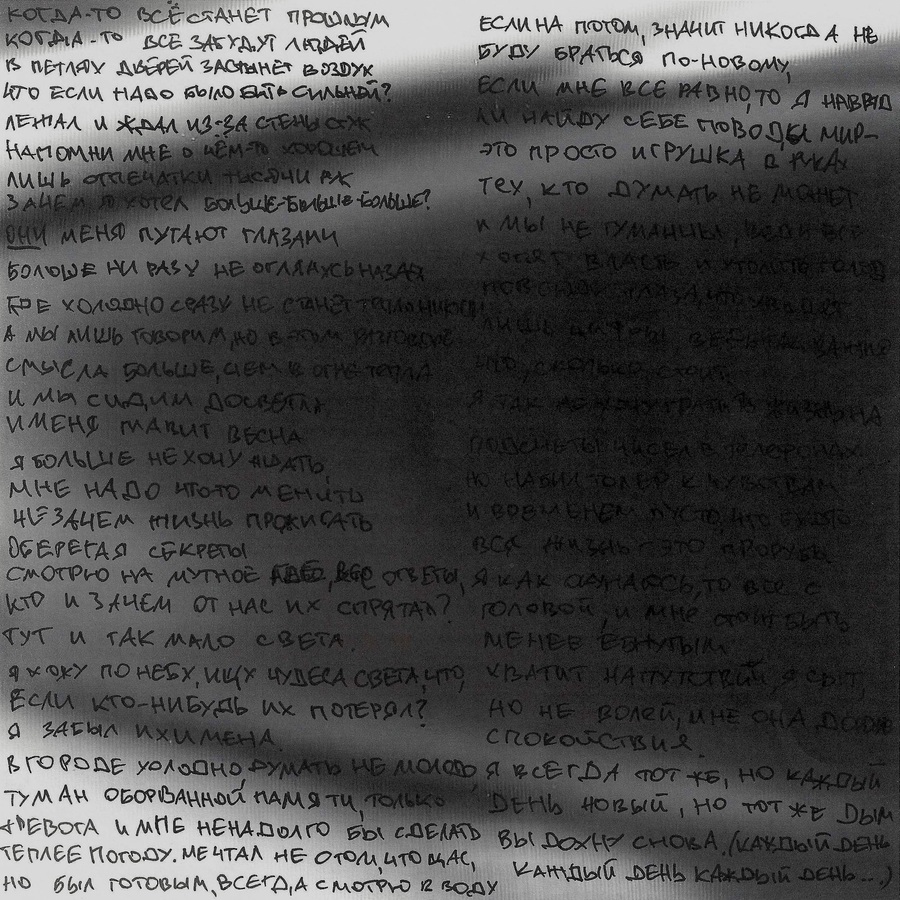 КОГДА-ТО ВСЁ СТАНЕТ ПРОШЛЫМ
КОГДА-ТО ВСЕ ЗАБУДУТ ЛЮДЕЙ
В ПЕТЛЯХ ДВЕРЕЙ ЗАСТЫНЕТ ВОЗДУХ
ЧТО ЕСЛИ НАДО БЫЛО БЫТЬ СИЛЬНЕЙ?
ЛЕЖАЛ И ЖДАЛ ИЗ-ЗА СТЕНЫ
НАПОМНИ МНЕ О ЧЁМ-ТО ХОРОШЕМ
ЛИШЬ ОТПЕЧАТКИ ТЫСЯЧИ РУК
ЗАЧЕМ Я ХОТЕЛ БОЛЬШЕ-БОЛЬШЕ-БОЛЬШЕ?
ОНИ МЕНЯ ПУГАЮТ ГЛАЗАМИ
БОЛЬШЕ НИ РАЗУ НЕ ОГЛЯНУСЬ НАЗАД
ГДЕ ХОЛОДНО СРАЗУ НЕ СТАНЕТ
А МЫ ЛИШЬ ГОВОРИМ, НО В ЭТОМ РАЗГОВОРЕ
СМЫСЛА БОЛЬШЕ, ЧЕМ В ОГНЕ ТЕПЛА
И МЫ СИДИМ ДОСВЕТЛА
И МЕНЯ ПЛАВИТ ВЕСНА
Я БОЛЬШЕ НЕ ХОЧУ ЖДАТЬ
МНЕ НАДО ЧТО-ТО МЕНЯТЬ
НЕЗАЧЕМ ЖИЗНЬ ПРОЖИГАТЬ
ОБЕРЕГАЯ СЕКРЕТЫ
СМОТРЮ НА МУТНОЕ ОТВЕТЫ,
КТО И ЗАЧЕМ ОТ НАС ИХ СПРЯТАЛ?
ТУТ И ТАК МАЛО СВЕТА.
Я ХОЖУ ПО НЕБУ, ИЩУ ЧУДЕСА СВЕТА, ЧТО,
ЕСЛИ КТО-НИБУДЬ ИХ ПОТЕРЯЛ?
Я ЗАБЫЛ ИХ ИМЕНА
В ГОРОДЕ ХОЛОДНО, ДУМАТЬ НЕ МОЛОДО,
ТУМАН ОБОРВАННОЙ ПАМЯТИ, ТОЛЬКО
ТРЕВОГА И МНЕ НЕНАДОЛГО БЫ СДЕЛАТЬ
ТЕПЛЕЕ ПОГОДУ. МЕЧТАЛ НЕ О ТОМ, ЧТО ЩАС,
НО БЫЛ ГОТОВЫМ, ВСЕГДА СМОТРЮ В ВОДУ
ЕСЛИ НА ПОТОМ, ЗНАЧИТ НИКОГДА НЕ
БУДУ БРАТЬСЯ ПО-НОВОМУ,
ЕСЛИ МНЕ ВСЕ РАВНО, ТО Я НАВРЯД
ЛИ НАЙДУ СЕБЕ ПОВОДЫ МИР-
ЭТО ПРОСТО ИГРУШКА В РУКАХ
ТЕХ, КТО ДУМАТЬ НЕ МОЖЕТ
И МЫ НЕ ГУМАННЫ, ВЕДЬ ВСЕ
ХОТЯТ ВЛАСТЬ И УТОЛИТЬ ГОЛОД
ГЛАЗА, ЧТО УВИДЯТ
ЛИШЬ ЦИФРЫ
ЧТО, СКОЛЬКО СТОИТ
Я ТАК НЕ ХОЧУ ИГРАТЬ В ЖИЗНЬ НА
ПОДСЧЕТЫ ЧИСЕЛ В ТЕЛЕФОНАХ
К ЧУВСТВАМ
И ВОВМЕНЕМ ПУСТО, ЧТО БУДТО
ВСЯ ЖИЗНЬ - ЭТО ПРОРУБЬ
Я КАК ОКАЖУСЬ, ТО ВСЕ С
ГОЛОВОЙ, И МНЕ СТОИТ БЫТЬ
МЕНЕЕ ЕБНУТЫМ
ХВАТИТ НАПУТСТВИЙ, Я СЫТ,
НО НЕ ВОЛЕЙ, МНЕ ОНА ДОРОЖЕ
СПОКОЙСТВИЯ.
Я ВСЕГДА ТОТ ЖЕ, НО КАЖДЫЙ
ДЕНЬ НОВЫЙ, НО ТОТ ЖЕ ДЫМ
ВЫДОХНУ СНОВА. (КАЖДЫЙ ДЕНЬ
КАЖДЫЙ ДЕНЬ КАЖДЫЙ ДЕНЬ...)